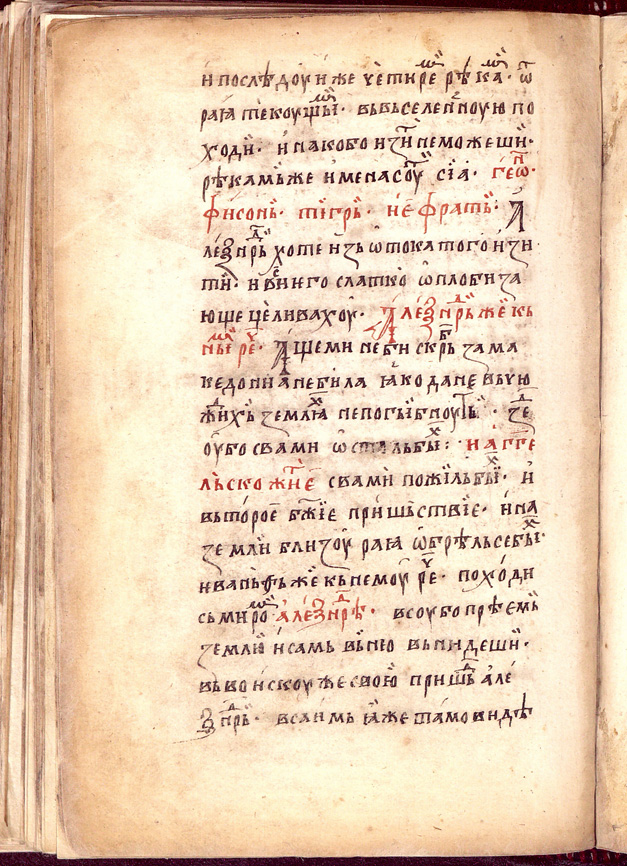 и послѣдоуи же четирем рѣкам. ѿ
раıа текоущыим. въ вьселен̾ноую по
ходи. инако бо изїити не можеши.
рѣкам же имена соут сїа. геѡн
фисонь. тигрь. и еѵфратъ. А
леѯндрь хоте изь ѡтока того изи
ти. и в него слатко ѡ плоби за
юще целивахоу. Алеѯндрь же кь
ним рече. Аще ми не би скрьб за ма
кедонїа не била ıако да не в боую
дих землıа не погыибноуть. зде
оубо с вами ѡсталь бых: и агге
льско житїе с вами пожиль бых. и
въторое бжїе пришьствїе. и на
земли близоу раıа ѡбрѣль се бых.
ивань же кь немоу рече. походи
сь миром алеѯндрѣ. всоу бо прѣемь
землю и самь вь ню вьнидеши.
вь воискоу же свою пришьд але
ѯндрь. всаим ıаже тамо видѣ